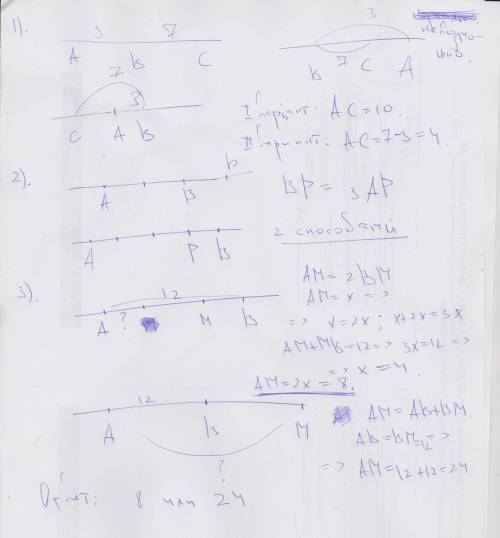 1).
3 7
A B C
3
неподхо-
дит
B 7 C A
7
3
C A B
I вариант: AC=10.
II вариант: AC=7-3=4.
2).
A B P
BP= 3AP
A P B
2 способами
3).
12
A ? M B
AM=2BM
AM=x =>
=> x=2x; x+2x=3x
AM+MB=12=> 3x=12 =>
=> x=4.
AM=2x=8.
12
A B M
?
AM=AB+BM.
AB=BM=12 =>
=> AM=12+12=24
Ответ: 8 или 24.